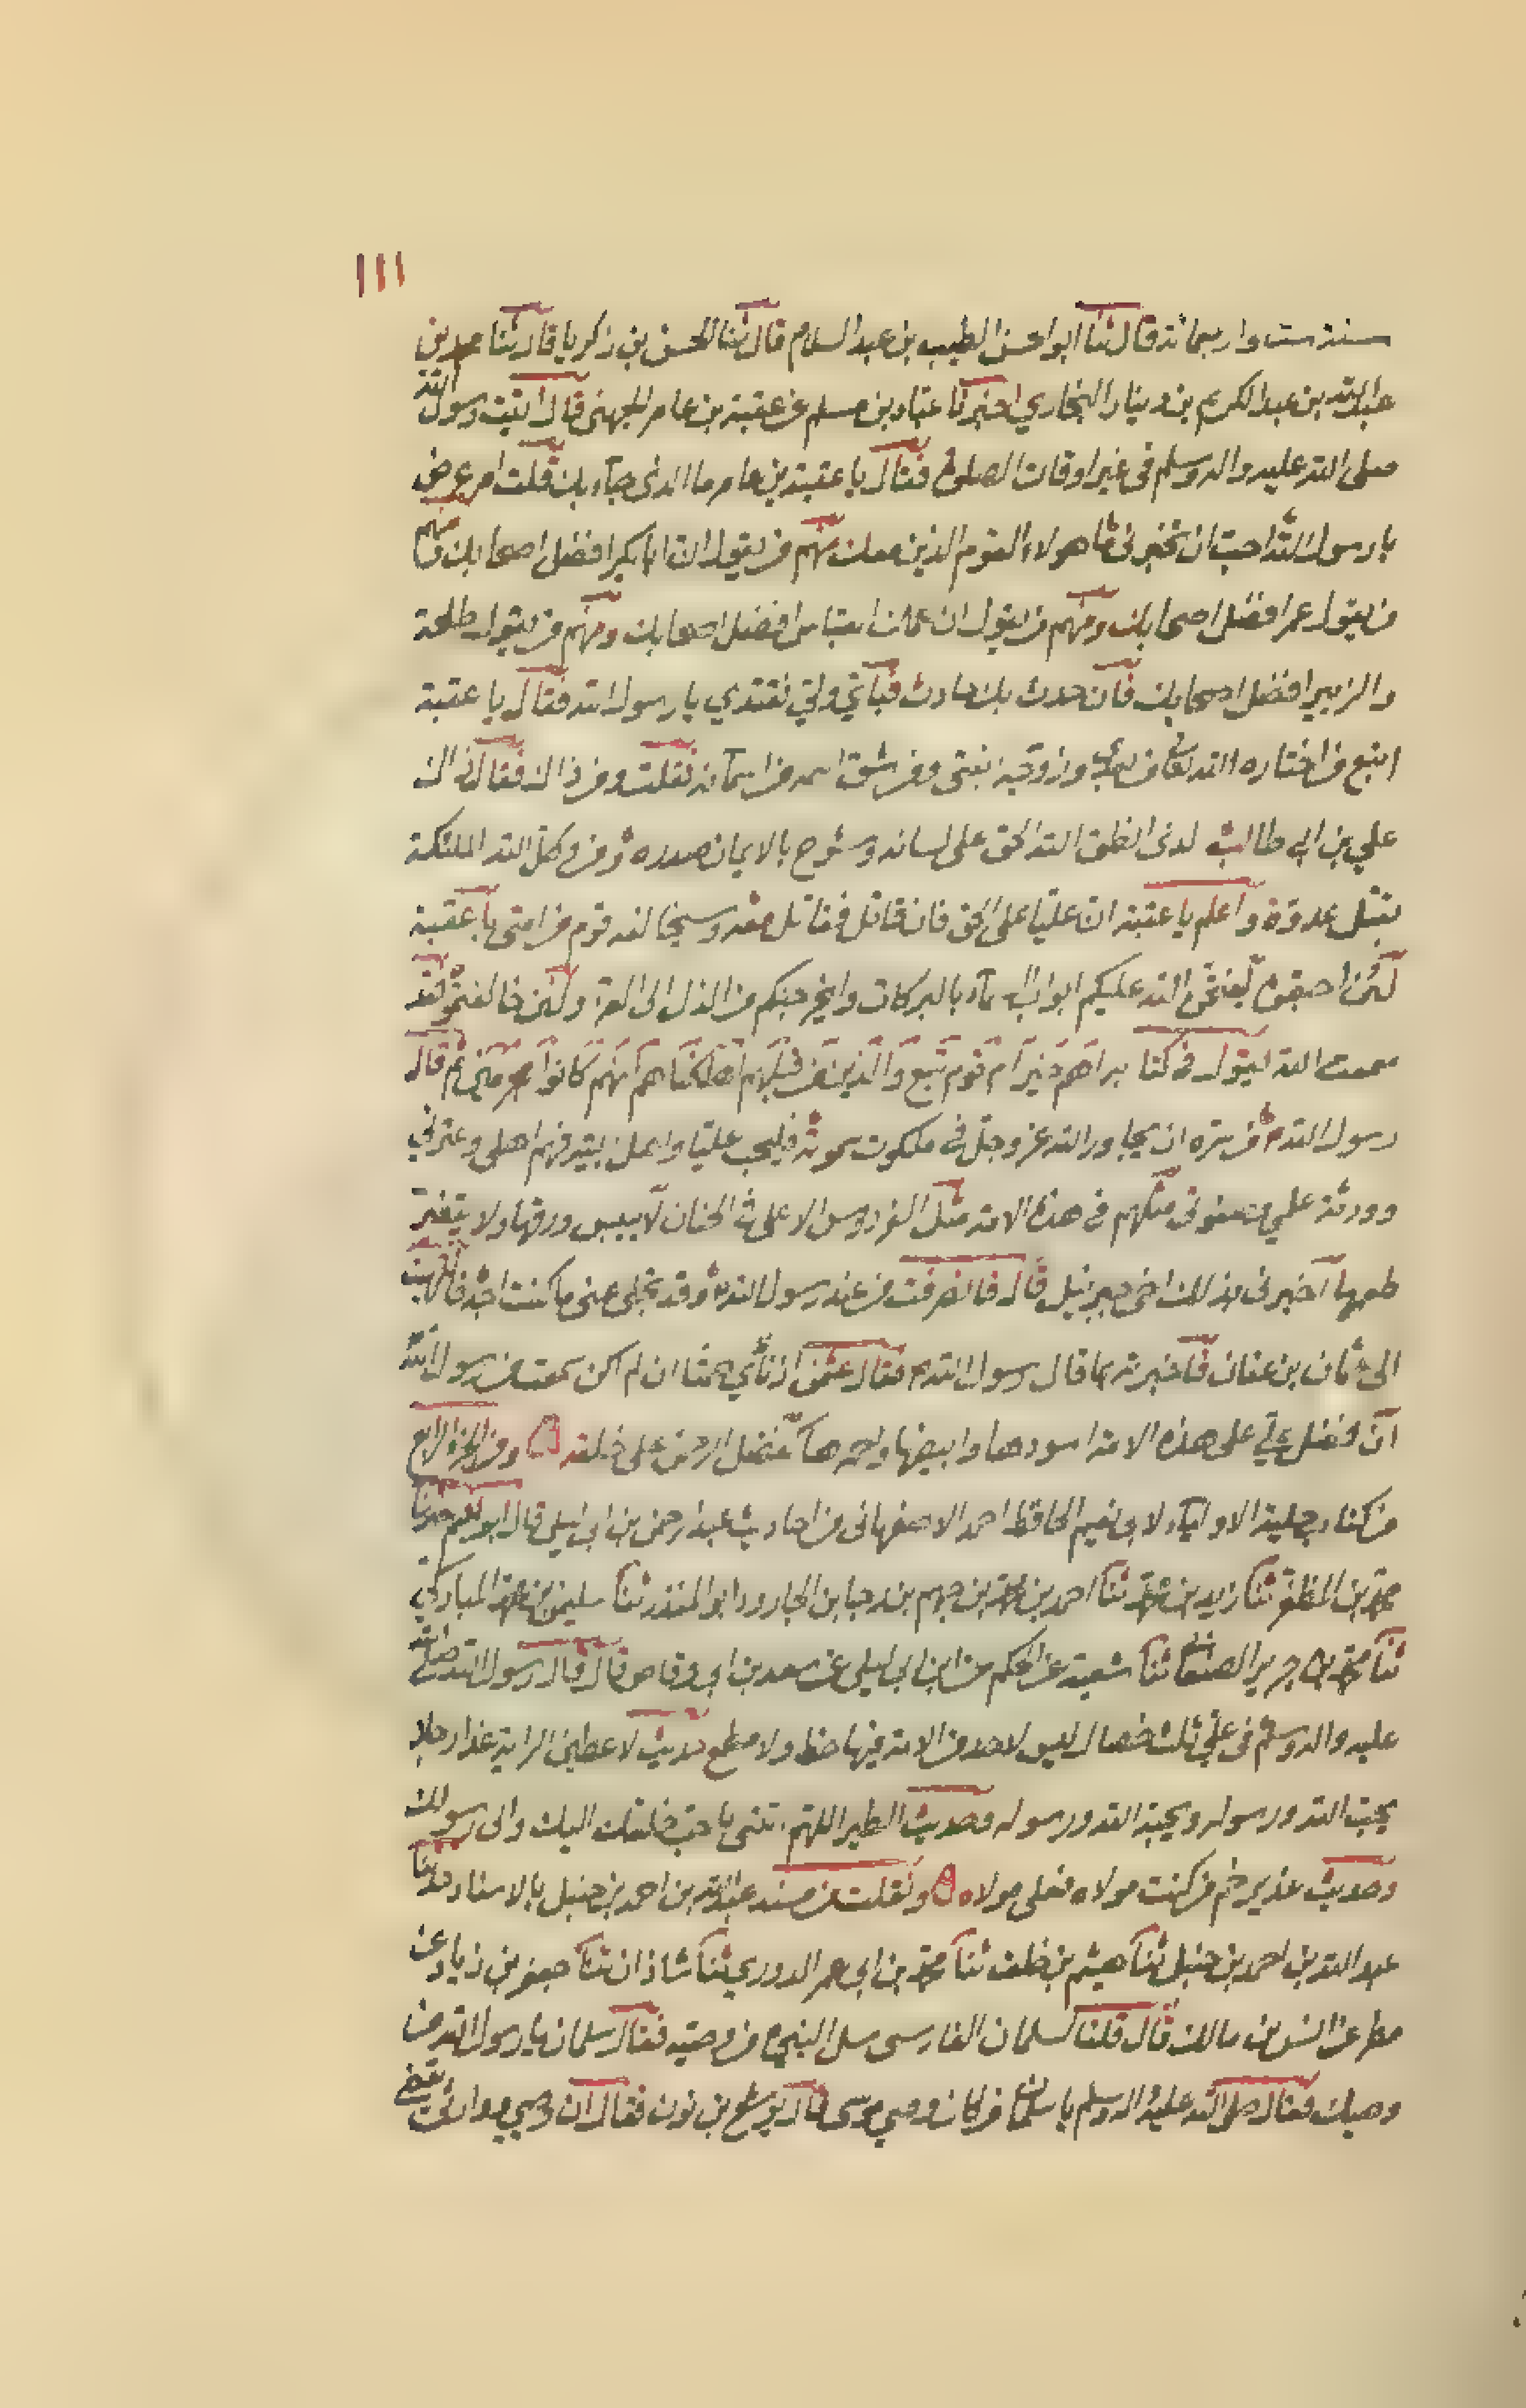 ١١١
سنة ست واربعمائة قال ثنا ابوالحسن الطيب بن عبد السلام قال ثنا الحسن بن زكريا قال ثنا محمد بن
عبد الله بن عبد الكريم بن دينار البخاري اخبرنا عباد بن مسلم عن عقبة بن عامر الجهني قال اتيت رسول الله
صلى الله عليه واله وسلم في غير اوقات الصلوة فقال يا عقبة بن عامر ما الذي جآء بك قلت امر عرض
يا رسول الله احب ان تخبرني ما هولاء القوم الذين معك منهم من يقول ان ابا بكر افضل اصحابك ومنهم
من يقول عمر افضل اصحابك ومنهم من يقول ان عثمان افضل اصحابك ومنهم من يقول طلحة
والزبير افضل اصحابك فان حدث بك حادث فبأي ولي نقتدي يا رسول الله فقال يا عقبة
اتبع من اختاره الله من بعدي وزوجته بنتي ومن شق اسمه من اسمآئه فقلت ومن ذاك فقال ذاك
علي بن ابي طالب الذي انطق الله الحق على لسانه وشرح بالايمان صدره ومن وكل الله الملئكة
بقتل عدوه واعلم يا عقبة ان عليا على الحق فان قاتل فقاتل معه وسيخالفه قوم من امتي يا عقبة
لئن اطيعوه ليفتحن الله عليكم ابواب السمآء بالبركات وليخرجنكم من الذل الى العز ولئن خالفتموه فقد
سمعت الله يقول في كتابه اهم خير ام قوم تبع والذين من قبلهم اهلكناهم انهم كانوا مجرمين ثم قال
رسول الله من سره ان يجاور الله عز وجل في ملكوت سمواته فليحب عليا واهل بيته فهم اهلي وعترتي
وورثة علمي وصفوتي مثلهم في هذه الامة مثل الفردوس الاعلى في الجنان لا ييبس ورقها ولا يتغير
طعمها اخبرني بذلك اخي جبرئيل قال فانصرفت من عند رسول الله وقد تجلى عني ما كنت اجد فانتهيت
الى عثمان بن عفان فاخبرته بما قال رسول الله فقال عثمن اذناي صمتا ان لم اكن سمعت من رسول الله
ان فضل علي على هذه الامة اسودها وابيضها واحمرها كفضل الرحمن على خلقه ومن الجزء الرابع
من كتاب حلية الاوليآء لابي نعيم الحافظ احمد الاصفهاني من احاديث عبد الرحمن بن ابي ليلى قال ابو نعيم حدثنا
محمد بن المظفر ثنا زيد بن محمد ثنا احمد بن محمد بن جهم بن رجا بن الجارود ابو المنذر ثنا سليمن بن محمد المباركي
ثنا محمد بن جرير الصنعاني ثنا شعبة عن الحكم عن ابن ابي ليلى عن سعد بن ابي وقاص قال قال رسول الله صلى الله
عليه واله وسلم في علي ثلث خصال ليس لاحد من الامة فيها حظ ولا مطمع حديث لاعطين الراية غدا رجلا
يحب الله ورسوله ويحبه الله ورسوله وحديث الطير اللهم ائتني باحب خلقك اليك والى رسولك
وحديث غدير خم من كنت مولاه فعلي مولاه ونقلت من مسند عبد الله بن احمد بن حنبل بالاسناد حدثنا
عبد الله بن احمد بن حنبل ثنا هيثم بن خلف ثنا محمد بن ابي عمر الدوري ثنا شاذان ثنا جعفر بن زياد عن
مطر عن انس بن مالك قال قلنا لسلمان الفارسي سل النبي من وصيه فقال سلمان يا رسول الله من
وصيك فقال صلى الله عليه واله وسلم يا سلمان من كان وصي موسى قال يوشع بن نون فقال ان وصيي ووارثي يقضي